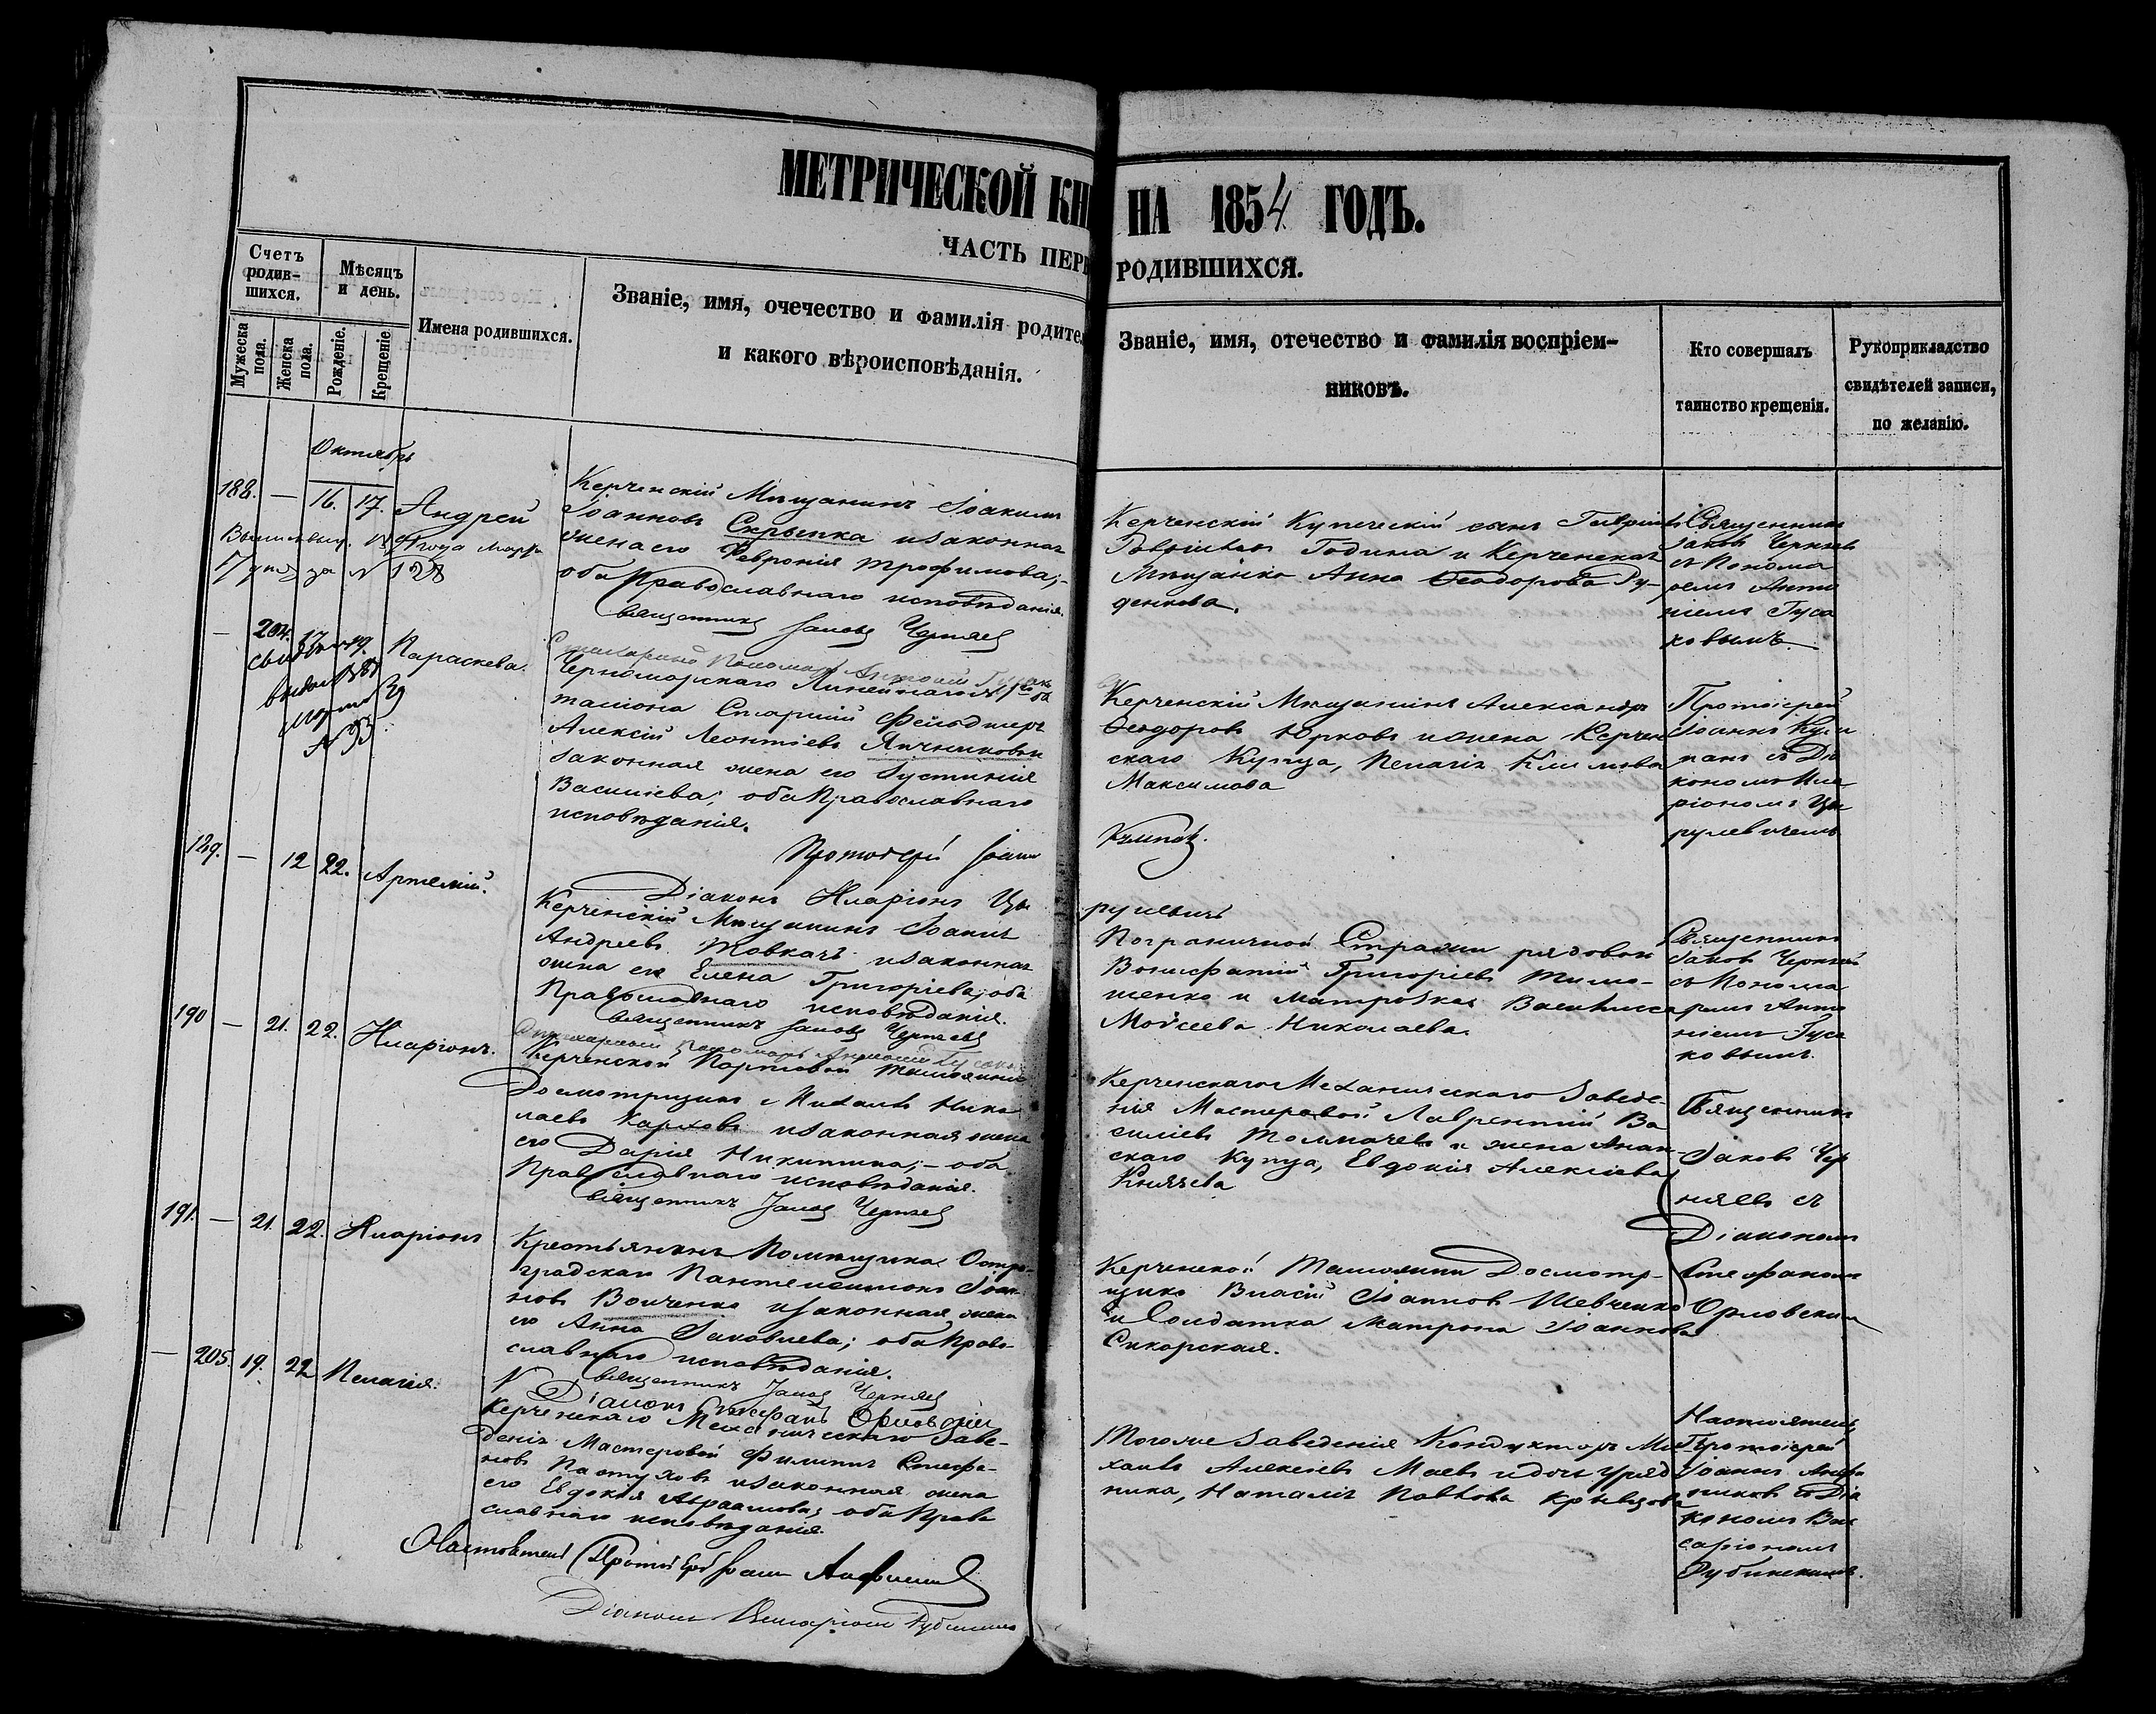 МЕТРИЧЕСКОЙ КНИ
НА 1854 ГОДЪ.
ЧАСТЬ ПЕРВ
РОДИВШИХСЯ.
Счетъ родив-шихся.
Мужеска пола.
Женска пола.
Мѣсяцъ и день.
Рожденіе.
Крещеніе
Имена родившихся.
Званіе, имя, очечество и фамилія родител
и какого вѣроисповѣданія.
Званіе, имя, отечество и фамилія воспріем-
никовъ.
Кто совершалъ
таинство крещенія.
Рукоприкладство
свидѣтелей записи,
по желанію.
Октябрь
188. — 16. 17. Андрей
17 за № 128
Керченскій Мѣщанинъ Іоакимъ
Іоанновъ Скрыпка и законная
жена его Феврония Трофимова;-
оба Православнаго исповѣданія.
Священникъ Іаковъ Черняев
Керченскій Купеческій сынъ Гавріилъ
Година и Керченская
Мѣщанка Анна Ѳеодорова Ру-
денкова.
Священникъ
Іаковъ Черняевъ
съ Понома
ремъ Анто
ніемъ Гуса
ковымъ.
— 204. 17. 19. Параскева.
№ 93
Пономарь Антоній
Черноморскаго Линейнаго
таліона Старшій Фельдшеръ
Алексій Леонтіевъ Яичниковъ и
законная жена его Іустинія
Василіева; оба Православнаго
исповѣданія.
Протоіерей Іоаннъ
Діаконъ Иларіонъ Цы
Керченскій Мѣщанинъ Александръ
Ѳеодоровъ Юрковъ и жена Керчен
скаго Купца, Пелагія Климова
Максимова
рулевичъ
Протоіерей
Іоаннъ
съ Діа
кономъ Ила
ріономъ Цы
рулевичемъ
189. — 12 22. Артемій.
Керченскій Мѣщанинъ Іоаннъ
Андреевъ Товкачъ и законная
жена его Елена Григоріева; оба
Православнаго исповѣданія.
Священникъ Іаковъ Черняев
Пономарь Антоній Гусаков
Пограничной Стражи рядовой
Вонифатій Григоріевъ Тимо-
шенко и Матроска Василисса
Мойсеева Николаева.
Священникъ
Іаковъ Черняев
съ Понома
ремъ Анто
ніемъ Гуса
ковымъ.
190 — 21. 22. Иларіонъ.
Керченской Портовой Таможни
Досмотрщикъ Михаилъ Нико
лаевъ Карховъ и законная жена
его Дарія Никитина;- оба
Православнаго исповѣданія.
Священникъ Іаковъ Черняев
Керченскаго Механическаго Заведе-
нія Мастеровой Лаврентій Ва
силіевъ Толмачевъ и жена Анап-
скаго Купца, Евдокія Алексіева
Князева
Священникъ
Іаковъ Чер
няевъ съ
Діакономъ
Стефаномъ
Орловскимъ
191. — 21. 22. Иларіонъ
Крестьянинъ Помѣщика Остро-
градскаго Пантелеимонъ Іоан-
новъ Волченко и законная жена
его Анна Іаковлева; оба Право-
славнаго исповѣданія.
Священникъ Іаковъ Черняев
Діаконъ Стефанъ Орловскій
Керченской Таможни Досмотр-
щикъ Власій Іоанновъ Шевченко
и Солдатка Матрона Іоаннова
Сикорская.
— 205. 19. 22 Пелагія.
Керченскаго Механическаго Заве-
денія Мастеровой Филиппъ Стефа-
новъ Пастуховъ и законная жена
его Евдокія Авраамова; оба Право
славнаго исповѣданія.
Настоятель Протоіерей Іоаннъ
Діаконъ
Тогоже Заведенія Кондукторъ Ми
хаилъ Алексіевъ Маевъ и дочь Уряд
ника, Наталія Павлова Кривцова
Настоятель
Протоіерей
Іоаннъ
съ Діа
кономъ Вис
саріономъ
Рубинскимъ.